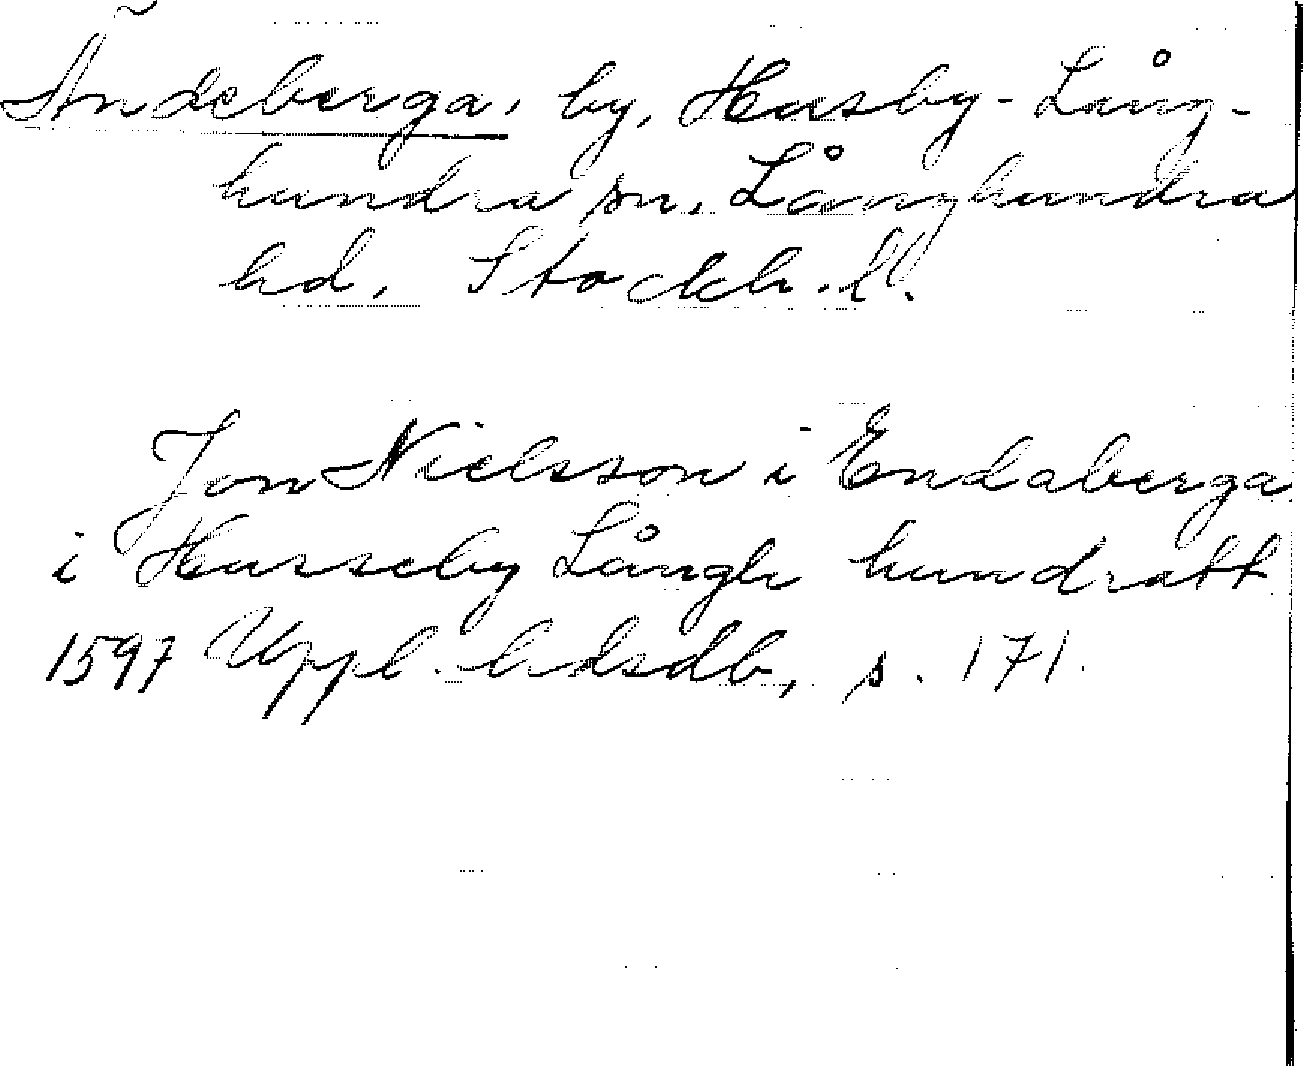 Ändeberga, by, Husby-Lång-
hundra sn, Långhundra
hd, Stockh. l.
Jon Nielsson i Endaberga
i Husseby Långh hundratt
1597 Uppl. hdsdb, s. 171.